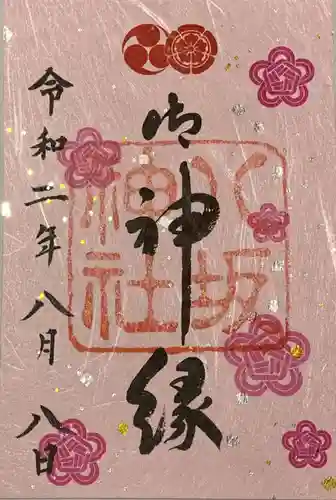 御神縁
八坂神社
令和二年八月八日